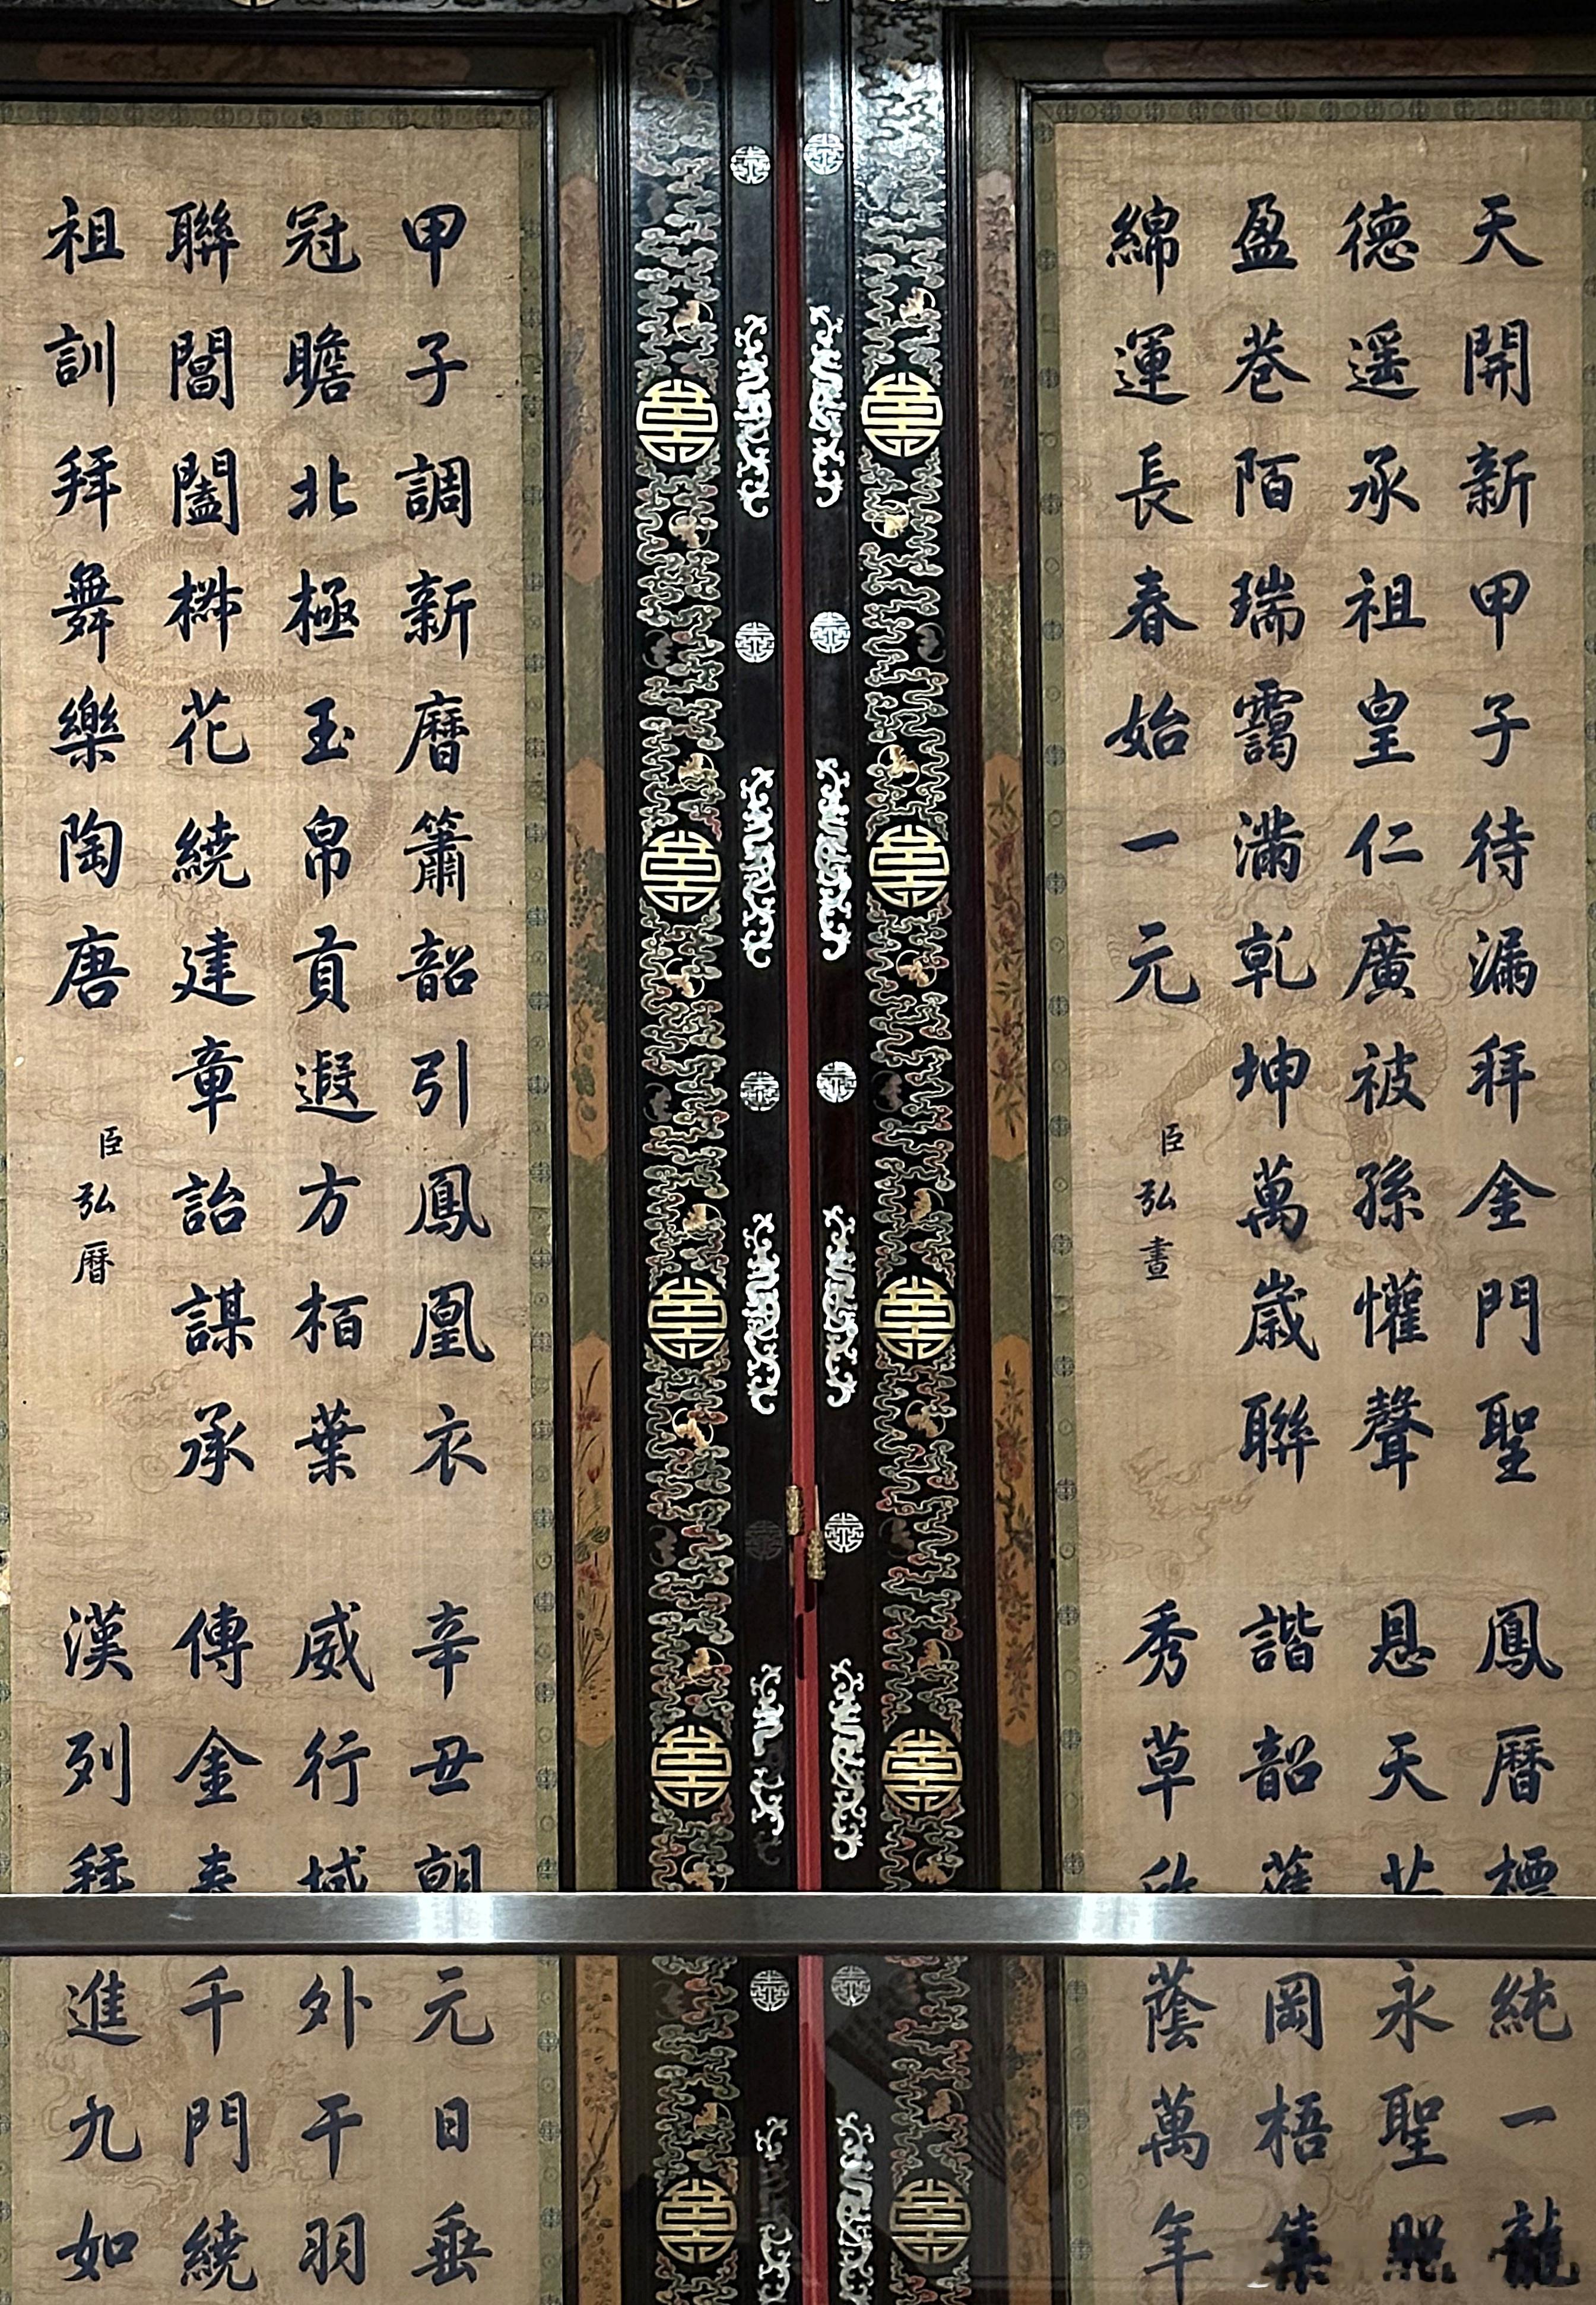 天開新甲子待漏拜金門聖
德遥承祖皇仁廣被孫懽聲
盈巷陌瑞靄滿乾坤萬歲聯
綿運長春始一元
臣弘晝
鳳曆標純一龍
恩天永聖照
諧韶岡梧集
秀草蔭萬年
甲子調新曆簫韶引鳳凰衣
冠瞻北極玉帛貢遐方栢葉
聯閶闔栁花繞建章詒謀承
祖訓拜舞樂陶唐
臣弘曆
辛丑朝元日垂
威行域外干羽
傳金千門繞
漢列拜進九如